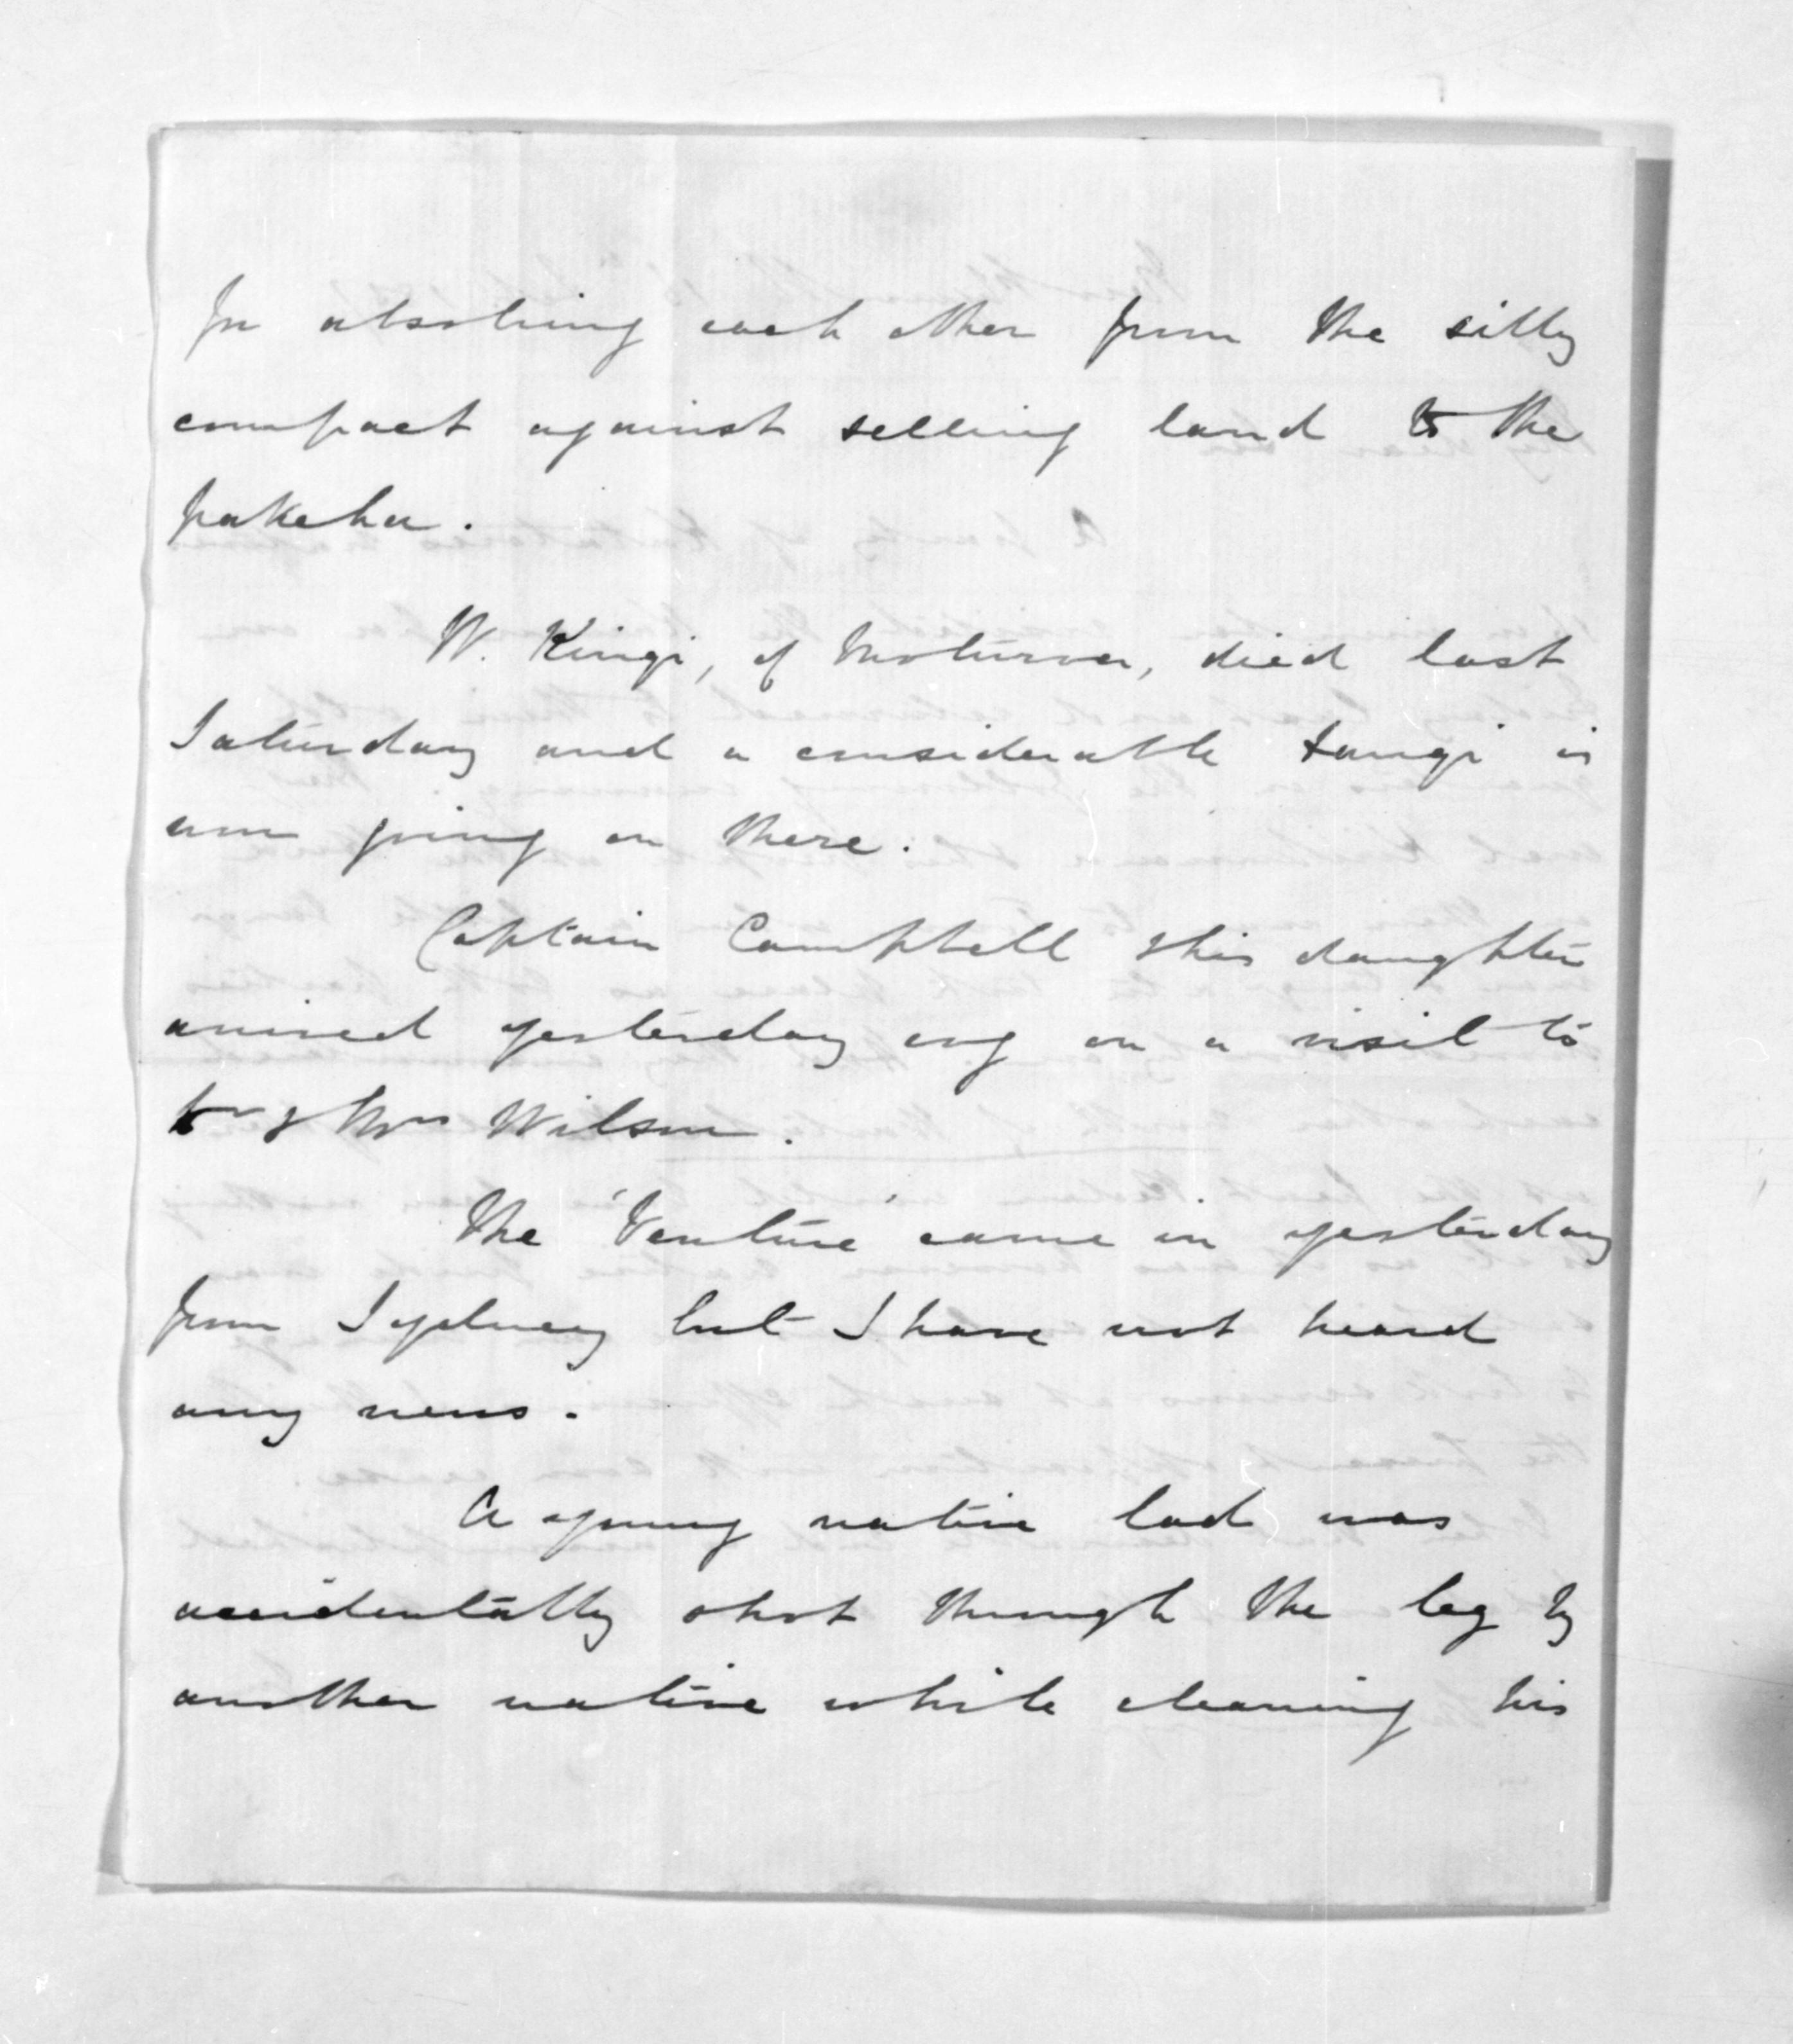 In absolving each other from the silly
compact against selling land to the
pakeha.
W. Kingi, of Moturoa, died last
Saturday and a considerable tangi is
now going on there.
Captain Campbell & his daughter
arrived yesterday evg on a visit to
Dr & Mrs Wilson.
The 'Venture' came in yesterday
from Sydney but I have not heard
any news.
A young native lad was
accidentally shot through the leg by
another native while cleaning his